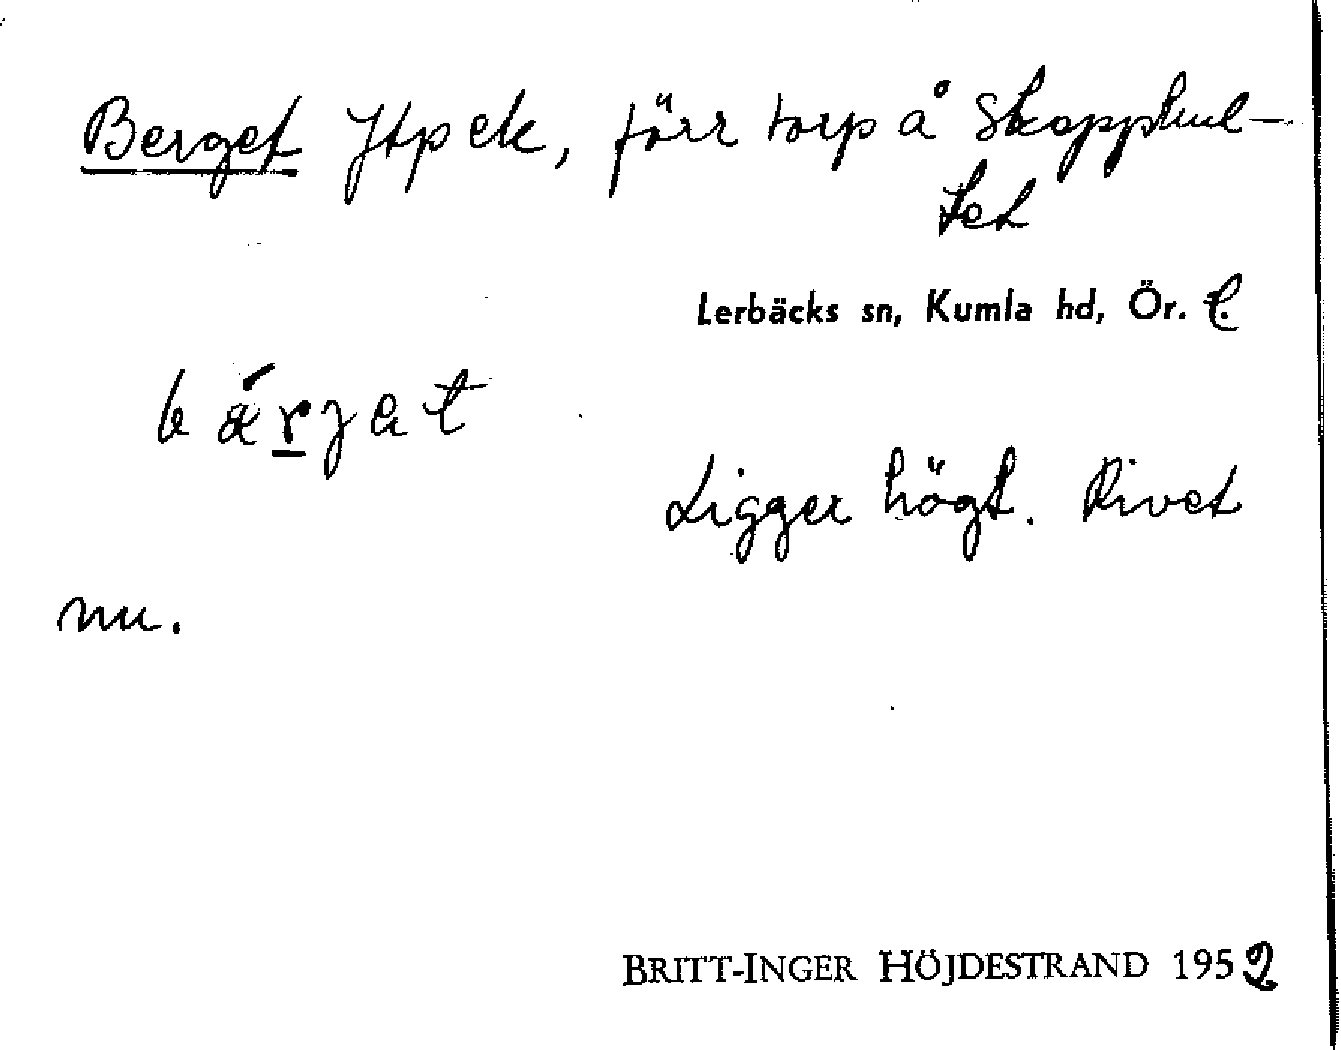 Berget Jtp ek, förr torp å Skopphul-
tet
Lerbäcks sn, Kumla hd, Ör. l.
bä́rjat
Ligger högt. Rivet
nu.
BRITT-INGER HÖJDESTRAND 1952